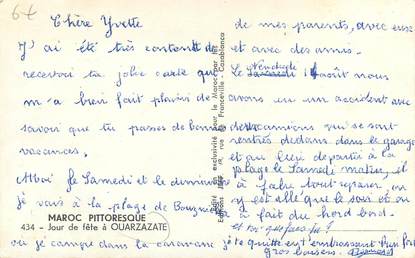 6+
Chère Yvette
J'ai été très contente de
recevoir ta jolie carte qui
m'a bien fait plaisir de
savoir que tu passes de bonnes
vacances.
Moi le Samedi et le dimanche
je vais à la plage de
MAROC PITTORESQUE
434 — Jour de fête à OUARZAZATE
où je campe dans la caravane
de mes parents, avec eux
et avec des amis.
Le Vendredi 14 août nous
avons eu un accident avec
des camions qui se sont
rentrés dedans dans le garage
et au lieu de partir à la
plage le Samedi matin, il
a fallu tout réparer, on
y est allé que le soir et on
a fait du hord bord.
et toi que fais-tu?
je te quitte en t'embrassant très fort
gros baisers.